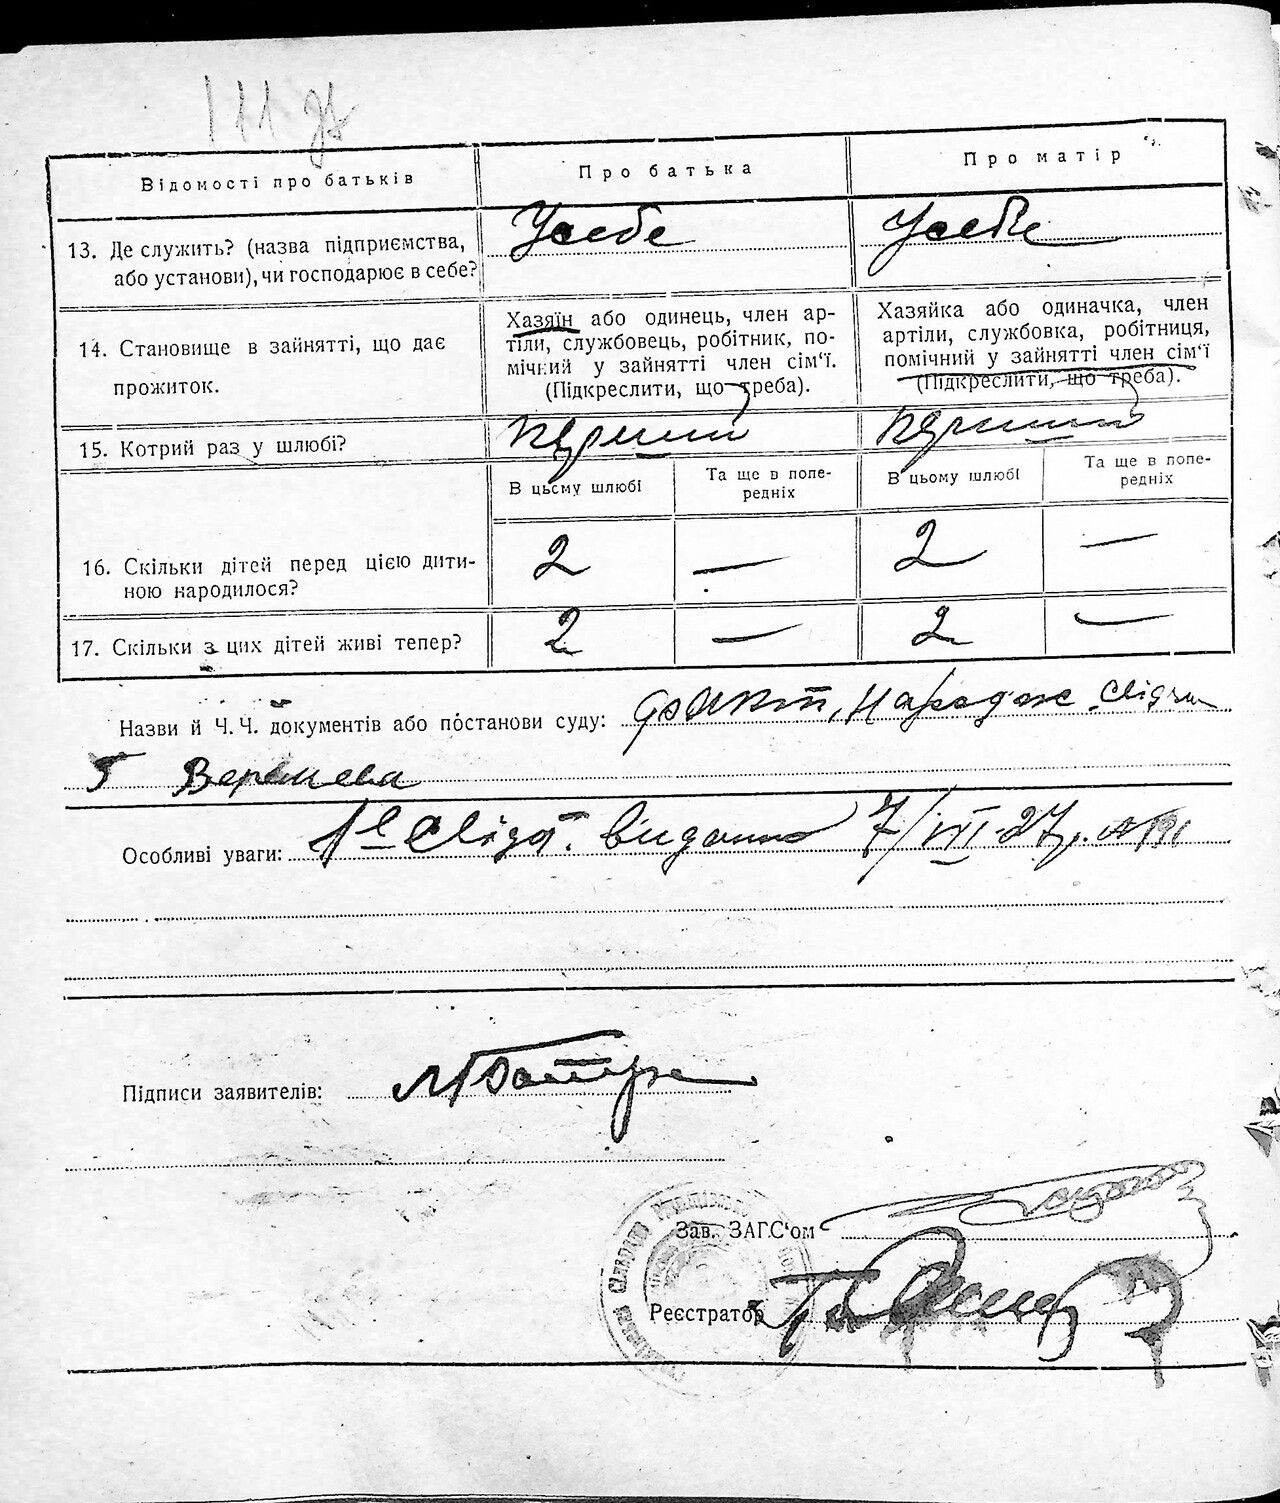 111 зв
Відомості про батьків
Про батька
Про матір
13. Де служить? (назва підприємства,
або установи), чи господарює в себе?
У себе
У себе
14. Становище в зайнятті, що дає
прожиток.
Хазяїн або одинець, член ар-
тіли, службовець, робітник, по-
мічний у зайнятті член сім‘ї.
(Підкреслити, що треба).
Хазяйка або одиначка, член
артіли, службовка, робітниця,
помічний у зайнятті член сім‘ї
(Підкреслити, що треба).
15. Котрий раз у шлюбі?
перший
перший
В цьому шлюбі
Та ще в попе-
редніх
В цьому шлюбі
Та ще в попе-
редніх
16. Скільки дітей перед цією дити-
ною народилося?
2
—
2
—
17. Скільки з цих дітей живі тепер?
2
—
2
—
Назви й Ч. Ч. документів або постанови суду:
Особливі уваги: видано 7/VII-27р.
Підписи заявителів:
Зав. ЗАГС‘ом
Реєстратор